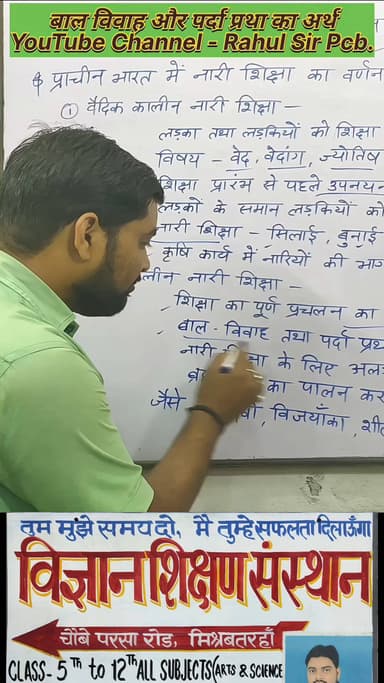 बाल विवाह और पर्दा प्रथा का अर्थ
YouTube Channel - Rahul Sir Pcb.
प्राचीन भारत में नारी शिक्षा का वर्णन
① वैदिक कालीन नारी शिक्षा —
लड़का तथा लड़कियों को शिक्षा
विषय – वेद, वेदांग, ज्योतिष
शिक्षा प्रारंभ से पहले उपनयन
लड़कों के समान लड़कियों को
नारी शिक्षा – सिलाई, बुनाई
कृषि कार्य में नारियों की भाग
लीन नारी शिक्षा —
शिक्षा का पूर्ण प्रचलन का
बाल - विवाह तथा पर्दा प्रथ
नारी के लिए अल
का पालन कर
जैसे विजयाँका, शील
तुम मुझे समय दो, मै तुम्हे सफलता दिलाऊँगा
विज्ञान शिक्षण संस्थान
चौबे परसा रोड, मिश्रबतरहाँ
CLASS- 5th to 12th ALL SUBJECTS (ARTS & SCIENCE